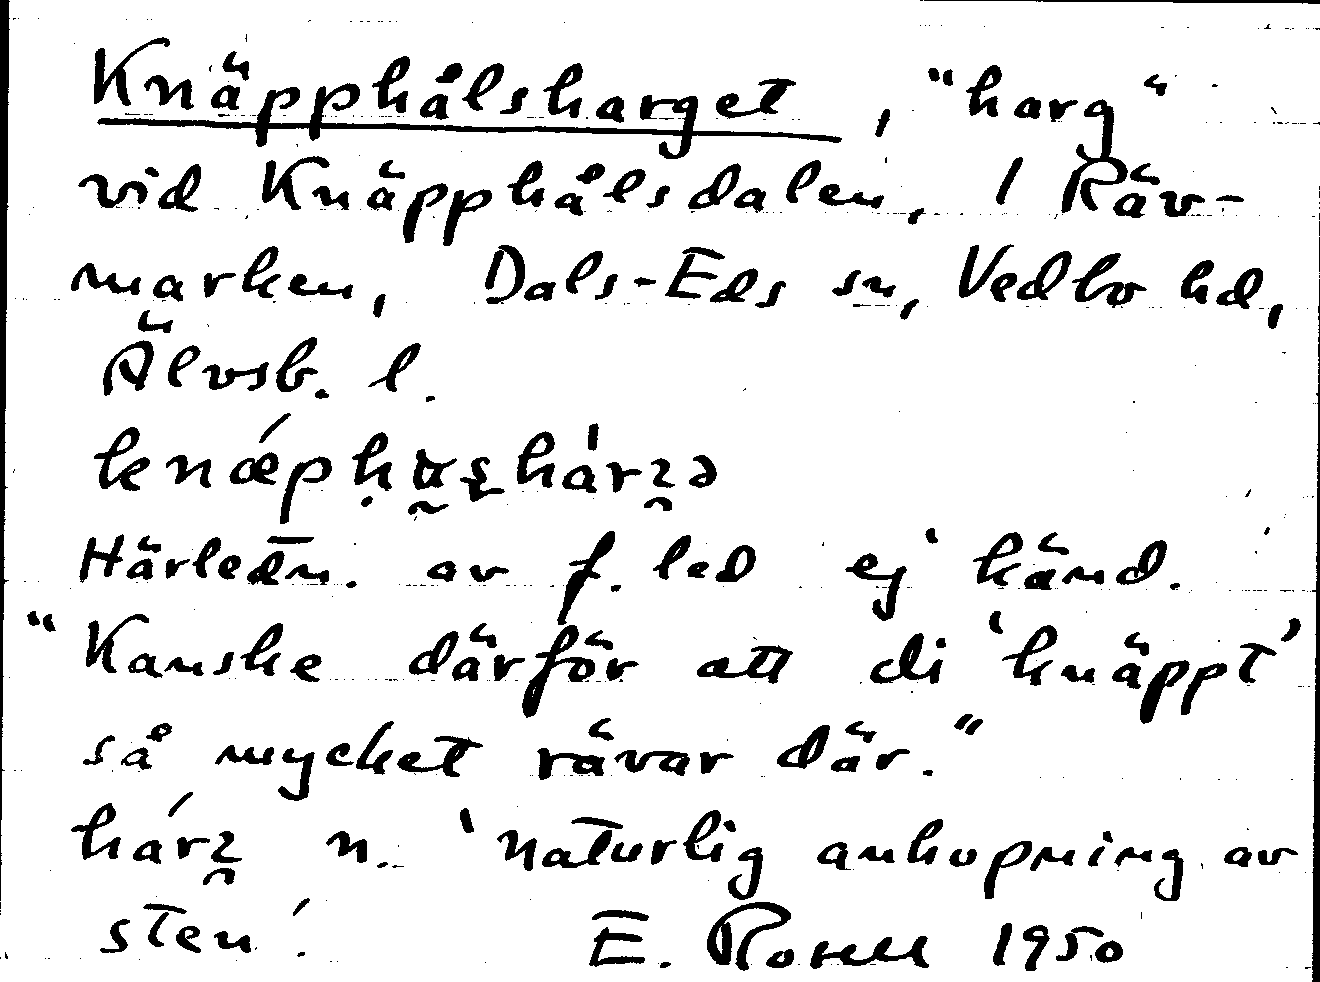 Knäpphålsharget, "harg"
vid Knäpphålsdalen, 1 Räv-
marken, Dals-Eds sn, Vedbo hd,
Älvsb. l.
Härledn. av f. led ej känd.
"Kanske därför att di 'knäppt'
så mycket rävar där."
n. 'naturlig anhopning av
sten'. E. Rosell 1950